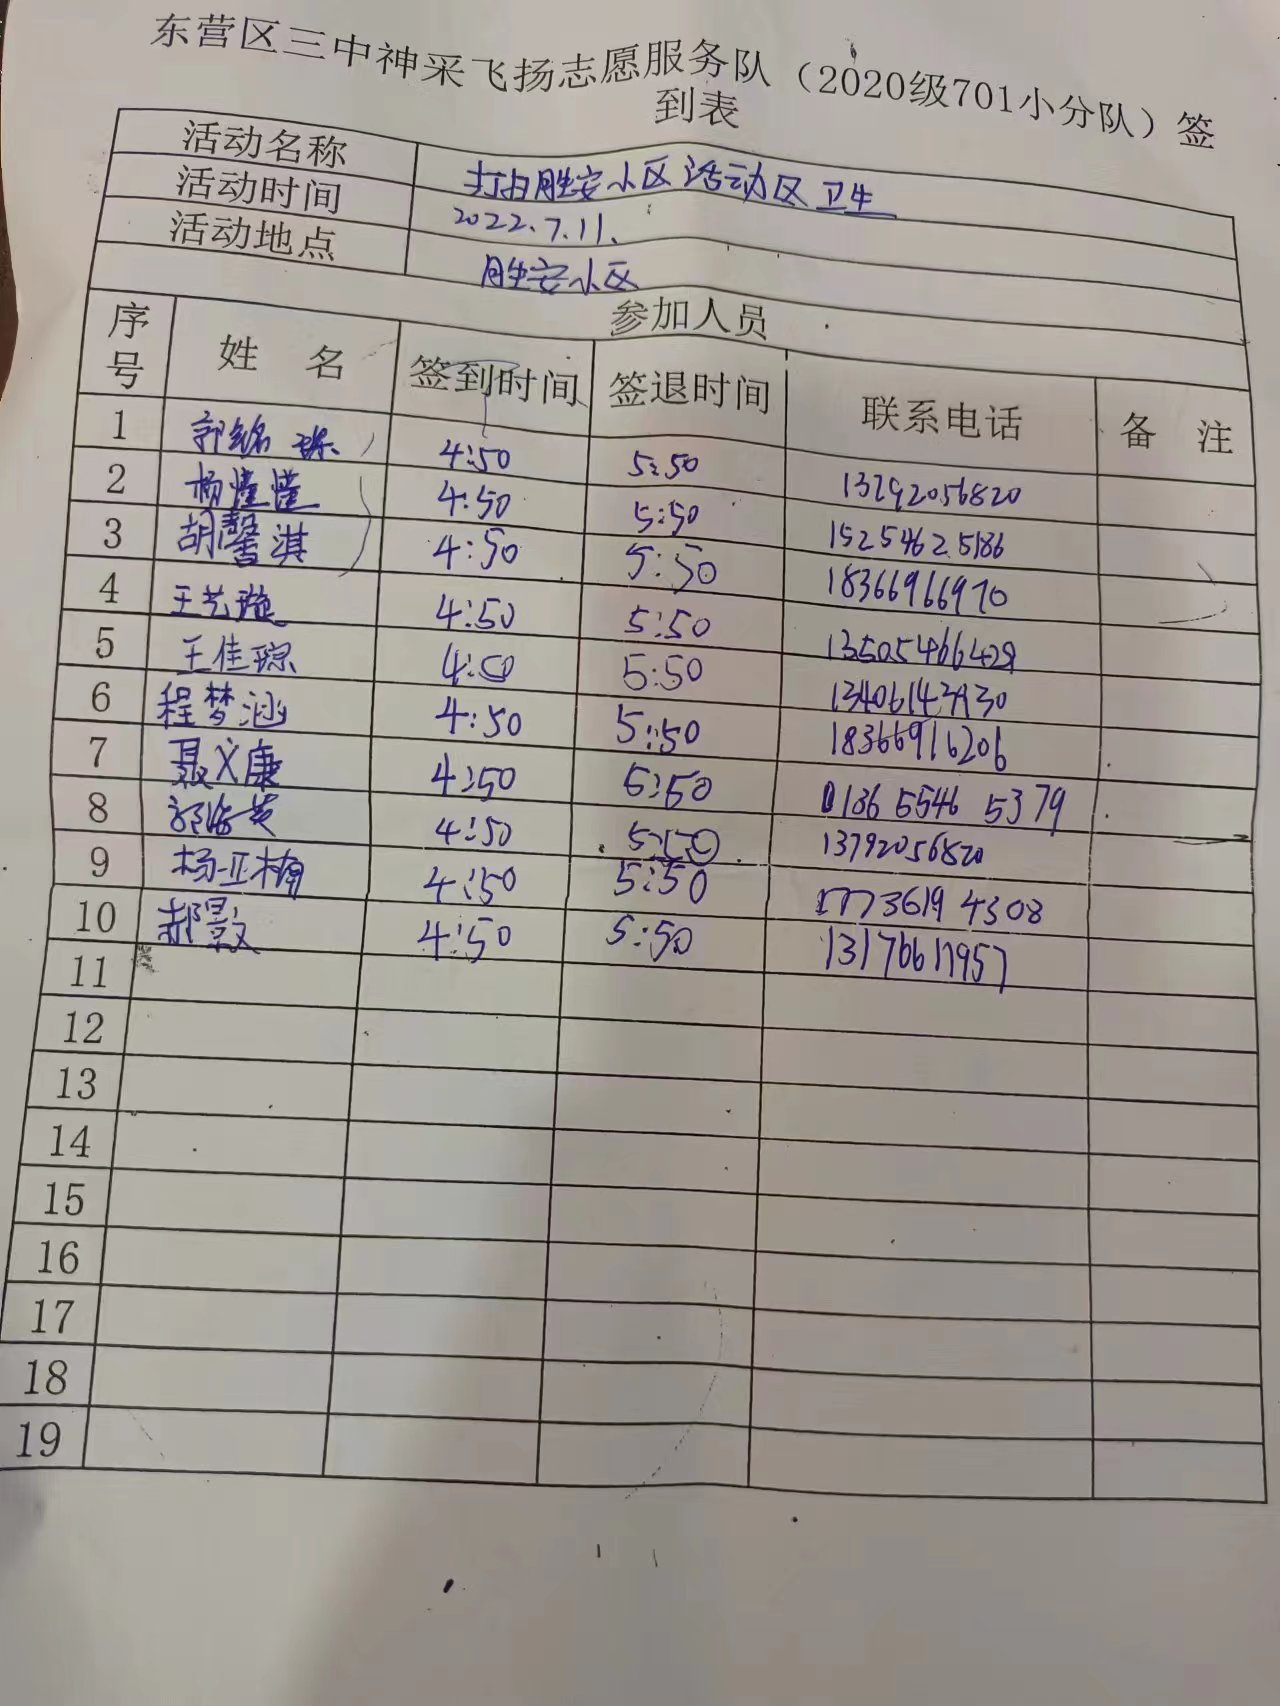 东营区三中神采飞扬志愿服务队（2020级701小分队）签
到表
活动名称 打扫胜安小区活动区卫生
活动时间 2022.7.11.
活动地点 胜安小区
参加人员
序号 姓 名 签到时间 签退时间 联系电话 备 注
1 郭铭 4:50 5:50 13792056820
2 杨 4:50 5:50 15254625186
3 胡馨淇 4:50 5:50 18366966970
4 王艺璇 4:50 5:50
5 王佳琼 4:50 5:50
6 程梦涵 4:50 5:50 18366916206
7 聂义康 4:50 5:50 186 5546 5379
8 郭 4:50 5:50 13792056820
9 杨亚楠 4:50 5:50 1773619 4308
10 郝 4:50 5:50 13176617957
11
12
13
14
15
16
17
18
19